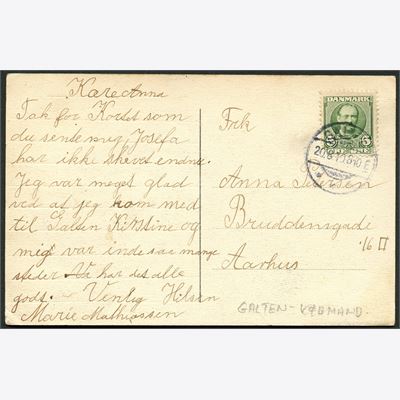 Kære Anna
Tak for Kortet som
du sendte mig Josefa
har ikke skrevet endnu.
Jeg var meget glad
ved at jeg kom med
til Galten Kirstine og
mig var inde saa mange
steder Vi har det alle
godt. - Venlig Hilsen
Marie Mathiassen
DANMARK
5 5
Frk
Anna Petersen
Bruddensgade
16 II
Aarhus
GALTEN - KØBMAND.